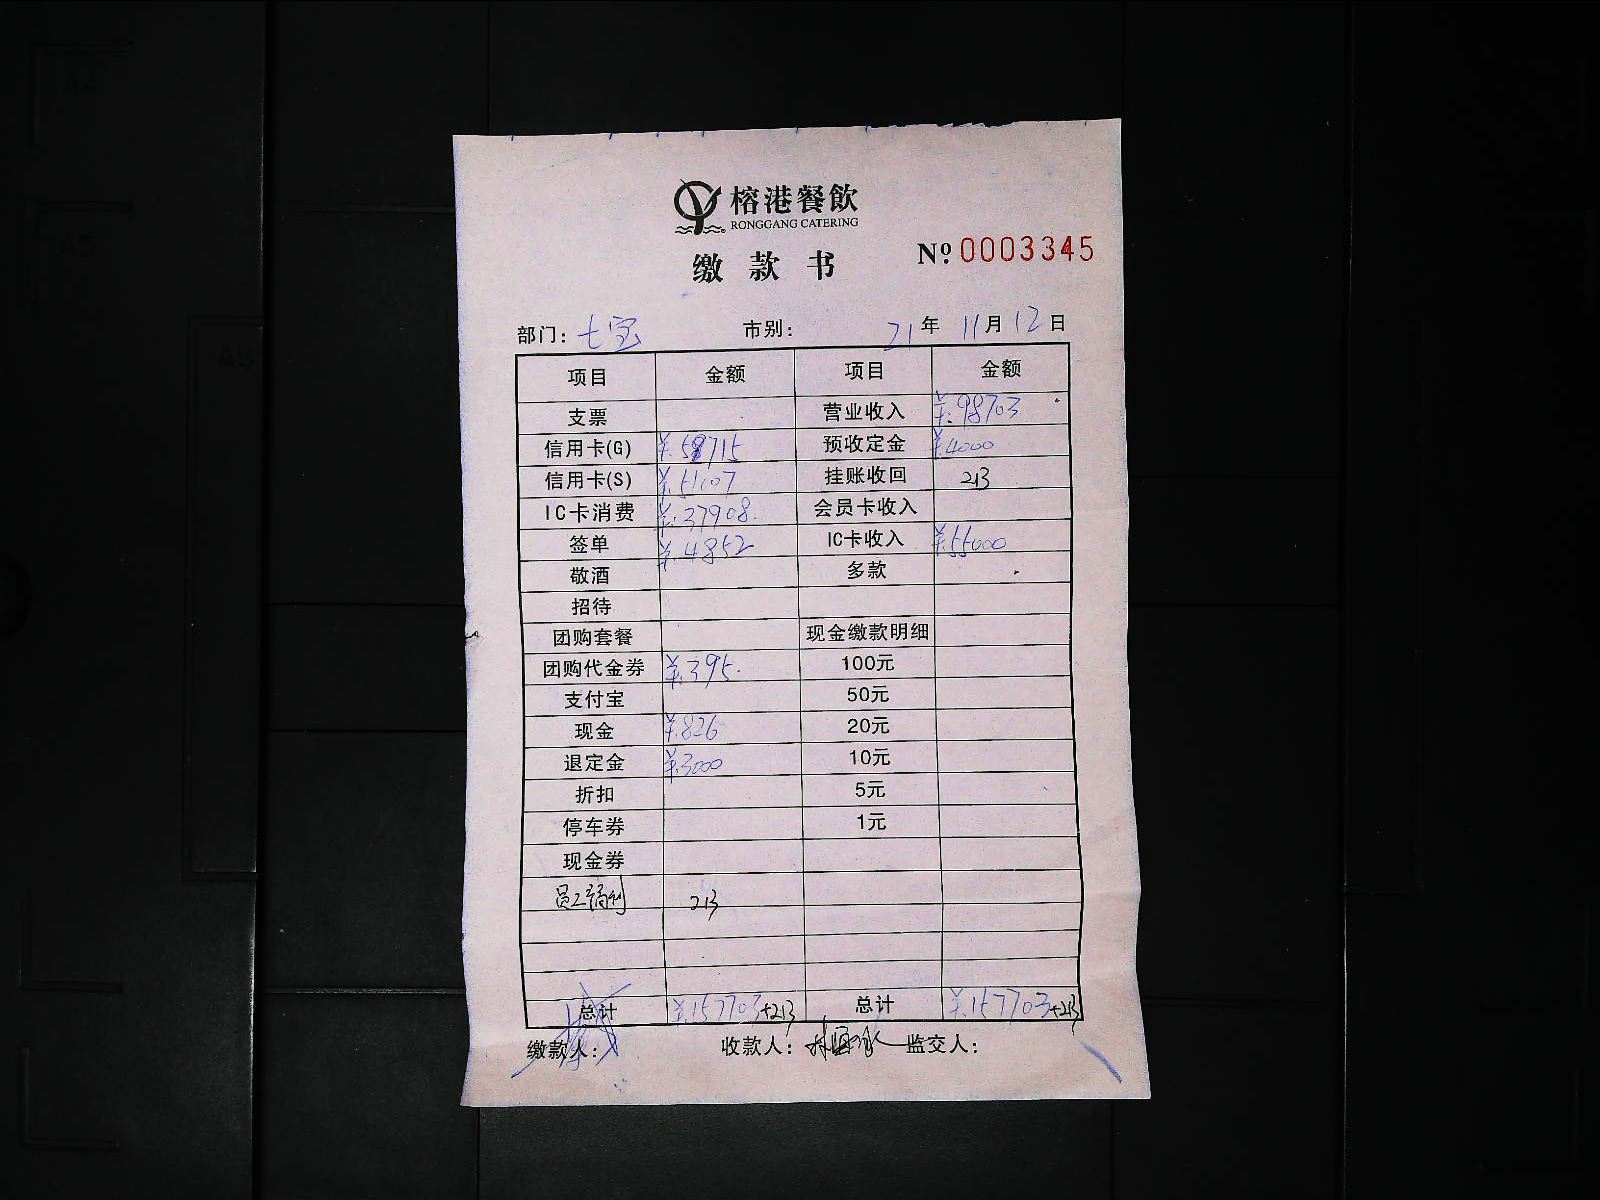 榕港餐飲
RONGGANG CATERING
缴款书 Nº 0003345
部门: 七宝 市别: 21年 11月 12日
项目 金额 项目 金额
支票 营业收入 ¥:98703
信用卡(G) ¥.59715 预收定金 ¥.4000
信用卡(S) ¥.51007 挂账收回 213
IC卡消费 ¥.37908. 会员卡收入
签单 ¥.4852 IC卡收入 ¥.55000
敬酒 多款
招待
团购套餐 现金缴款明细
团购代金券 ¥.395. 100元
支付宝 50元
现金 ¥.826 20元
退定金 ¥.3000 10元
折扣 5元
停车券 1元
现金券
员工福利 213
总计 ¥.157703+213 总计 ¥.157703+213
缴款人: 收款人: 监交人: